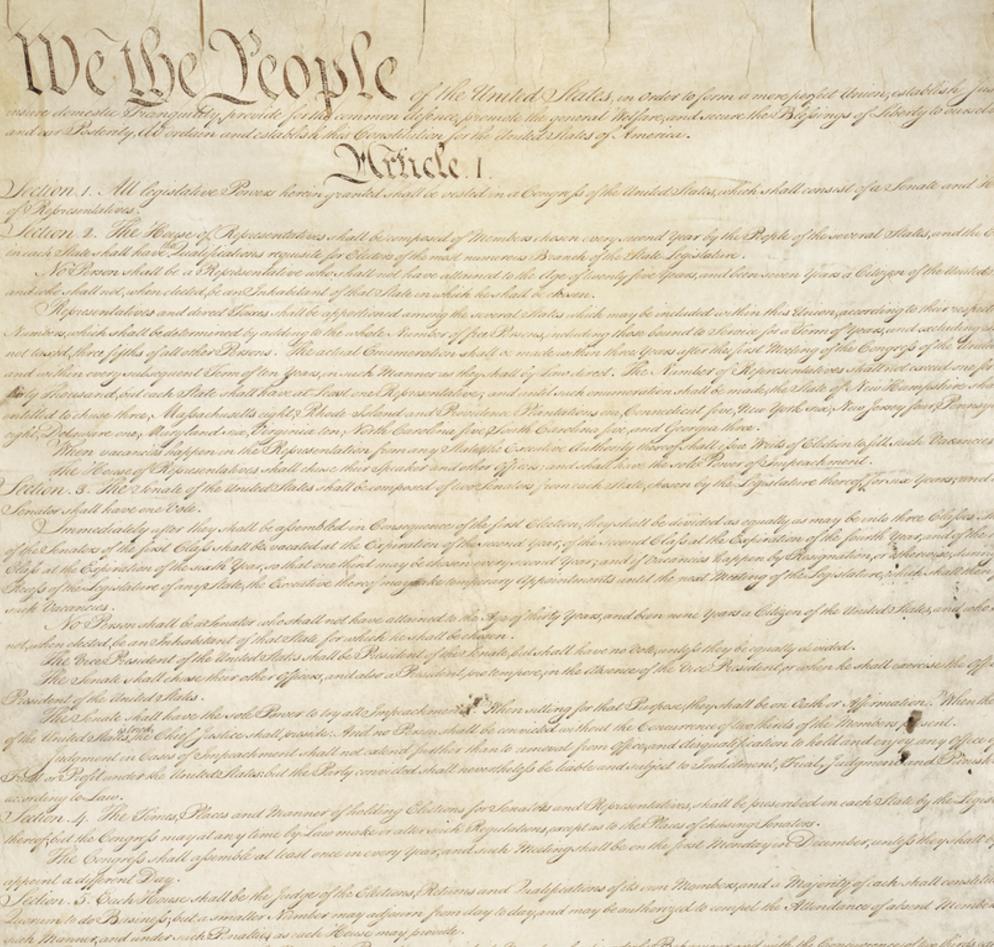 We the People of the United States, in Order to form a more perfect Union, establish Jus
insure domestic Tranquility, provide for the common defence, promote the general Welfare, and secure the Blessings of Liberty to oursel
and our Posterity, do ordain and establish this Constitution for the United States of America.
Article. I.
Section. 1. All legislative Powers herein granted shall be vested in a Congress of the United States, which shall consist of a Senate and H
of Representatives.
Section. 2. The House of Representatives shall be composed of Members chosen every second Year by the People of the several States, and the
in each State shall have the Qualifications requisite for Electors of the most numerous Branch of the State Legislature.
No Person shall be a Representative who shall not have attained to the Age of twenty five Years, and been seven Years a Citizen of the United
and who shall not, when elected, be an Inhabitant of that State in which he shall be chosen.
Representatives and direct Taxes shall be apportioned among the several States which may be included within this Union, according to their respect
Numbers, which shall be determined by adding to the whole Number of free Persons, including those bound to Service for a Term of Years, and excluding
not taxed, three fifths of all other Persons. The actual Enumeration shall be made within three Years after the first Meeting of the Congress of the United
and within every subsequent Term of ten Years, in such Manner as they shall by Law direct. The Number of Representatives shall not exceed one for
thirty Thousand, but each State shall have at Least one Representative; and until such enumeration shall be made, the State of New Hampshire sha
entitled to chuse three, Massachusetts eight, Rhode Island and Providence Plantations one, Connecticut five, New York six, New Jersey four, Pennsy
eight, Delaware one, Maryland six, Virginia ten, North Carolina five, South Carolina five, and Georgia three.
When vacancies happen in the Representation from any State, the Executive Authority thereof shall issue Writs of Election to fill such Vacancies
The House of Representatives shall chuse their Speaker and other Officers; and shall have the sole Power of Impeachment.
Section. 3. The Senate of the United States shall be composed of two Senators from each State, chosen by the Legislature thereof, for six Years; and
Senator shall have one Vote.
Immediately after they shall be assembled in Consequence of the first Election, they shall be divided as equally as may be into three Classes.
of the Senators of the first Class shall be vacated at the Expiration of the second Year, of the second Class at the Expiration of the fourth Year, and of the
Class at the Expiration of the sixth Year, so that one third may be chosen every second Year; and if Vacancies happen by Resignation, or otherwise, during
Recess of the Legislature of any State, the Executive thereof may make temporary Appointments until the next Meeting of the Legislature, which shall then
such Vacancies.
No Person shall be a Senator who shall not have attained to the Age of thirty Years, and been nine Years a Citizen of the United States, and who
not, when elected, be an Inhabitant of that State for which he shall be chosen.
The Vice President of the United States shall be President of the Senate, but shall have no Vote, unless they be equally divided.
The Senate shall chuse their other Officers, and also a President pro tempore, in the Absence of the Vice President, or when he shall exercise the Offi
President of the United States.
The Senate shall have the sole Power to try all Impeachments. When sitting for that Purpose, they shall be on Oath or Affirmation. When the
of the United States is tried, the Chief Justice shall preside: And no Person shall be convicted without the Concurrence of two thirds of the Members present.
Judgment in Cases of Impeachment shall not extend further than to removal from Office, and disqualification to hold and enjoy any Office of
Trust or Profit under the United States: but the Party convicted shall nevertheless be liable and subject to Indictment, Trial, Judgment and Punish
according to Law.
Section. 4. The Times, Places and Manner of holding Elections for Senators and Representatives, shall be prescribed in each State by the Legis
thereof; but the Congress may at any time by Law make or alter such Regulations, except as to the Places of chusing Senators.
The Congress shall assemble at least once in every Year, and such Meeting shall be on the first Monday in December, unless they shall b
appoint a different Day.
Section. 5. Each House shall be the Judge of the Elections, Returns and Qualifications of its own Members, and a Majority of each shall constitu
Quorum to do Business; but a smaller Number may adjourn from day to day, and may be authorized to compel the Attendance of absent Member
such Manner, and under such Penalties as each House may provide.